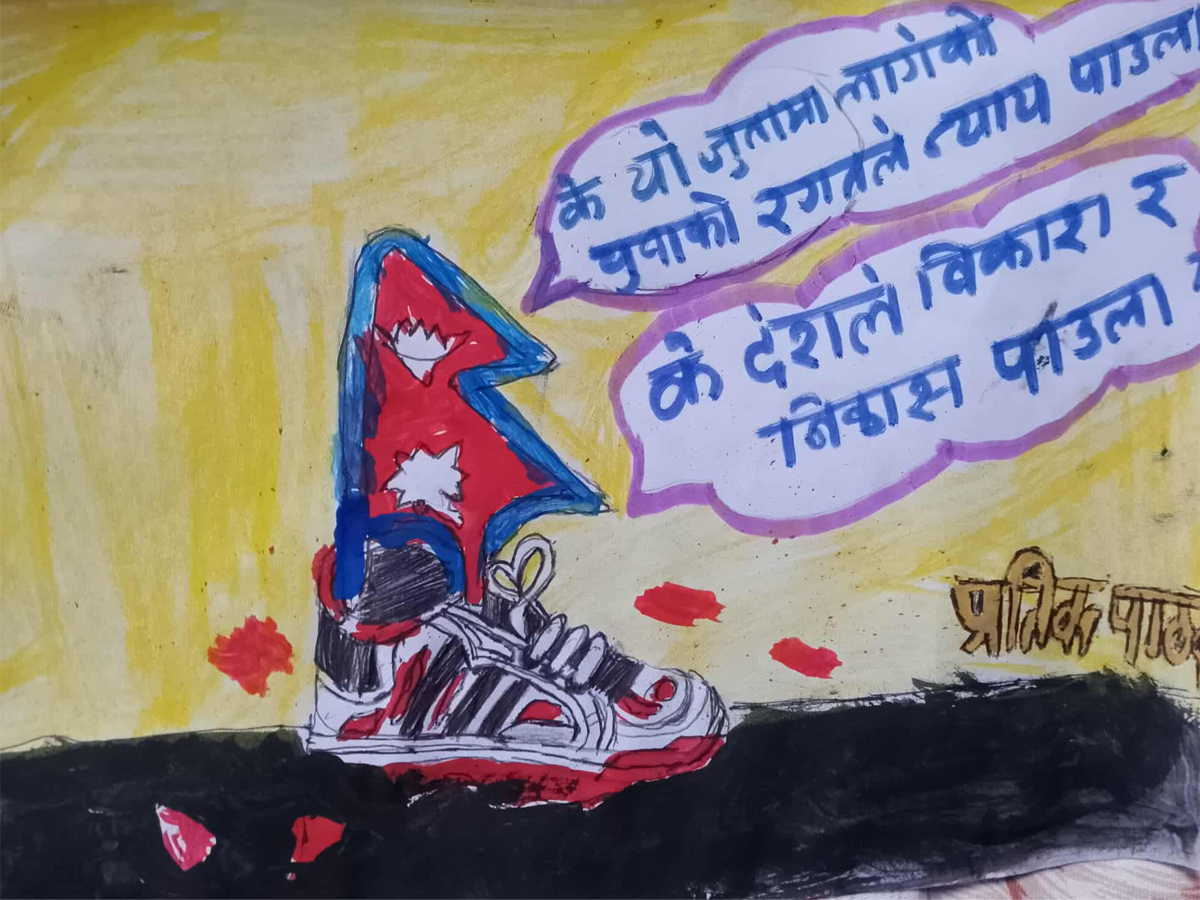 के यो जुतामा लागेको
युवाको रगतले न्याय पाउला
के देशले विकास र
निकास पाउला
प्रतिक